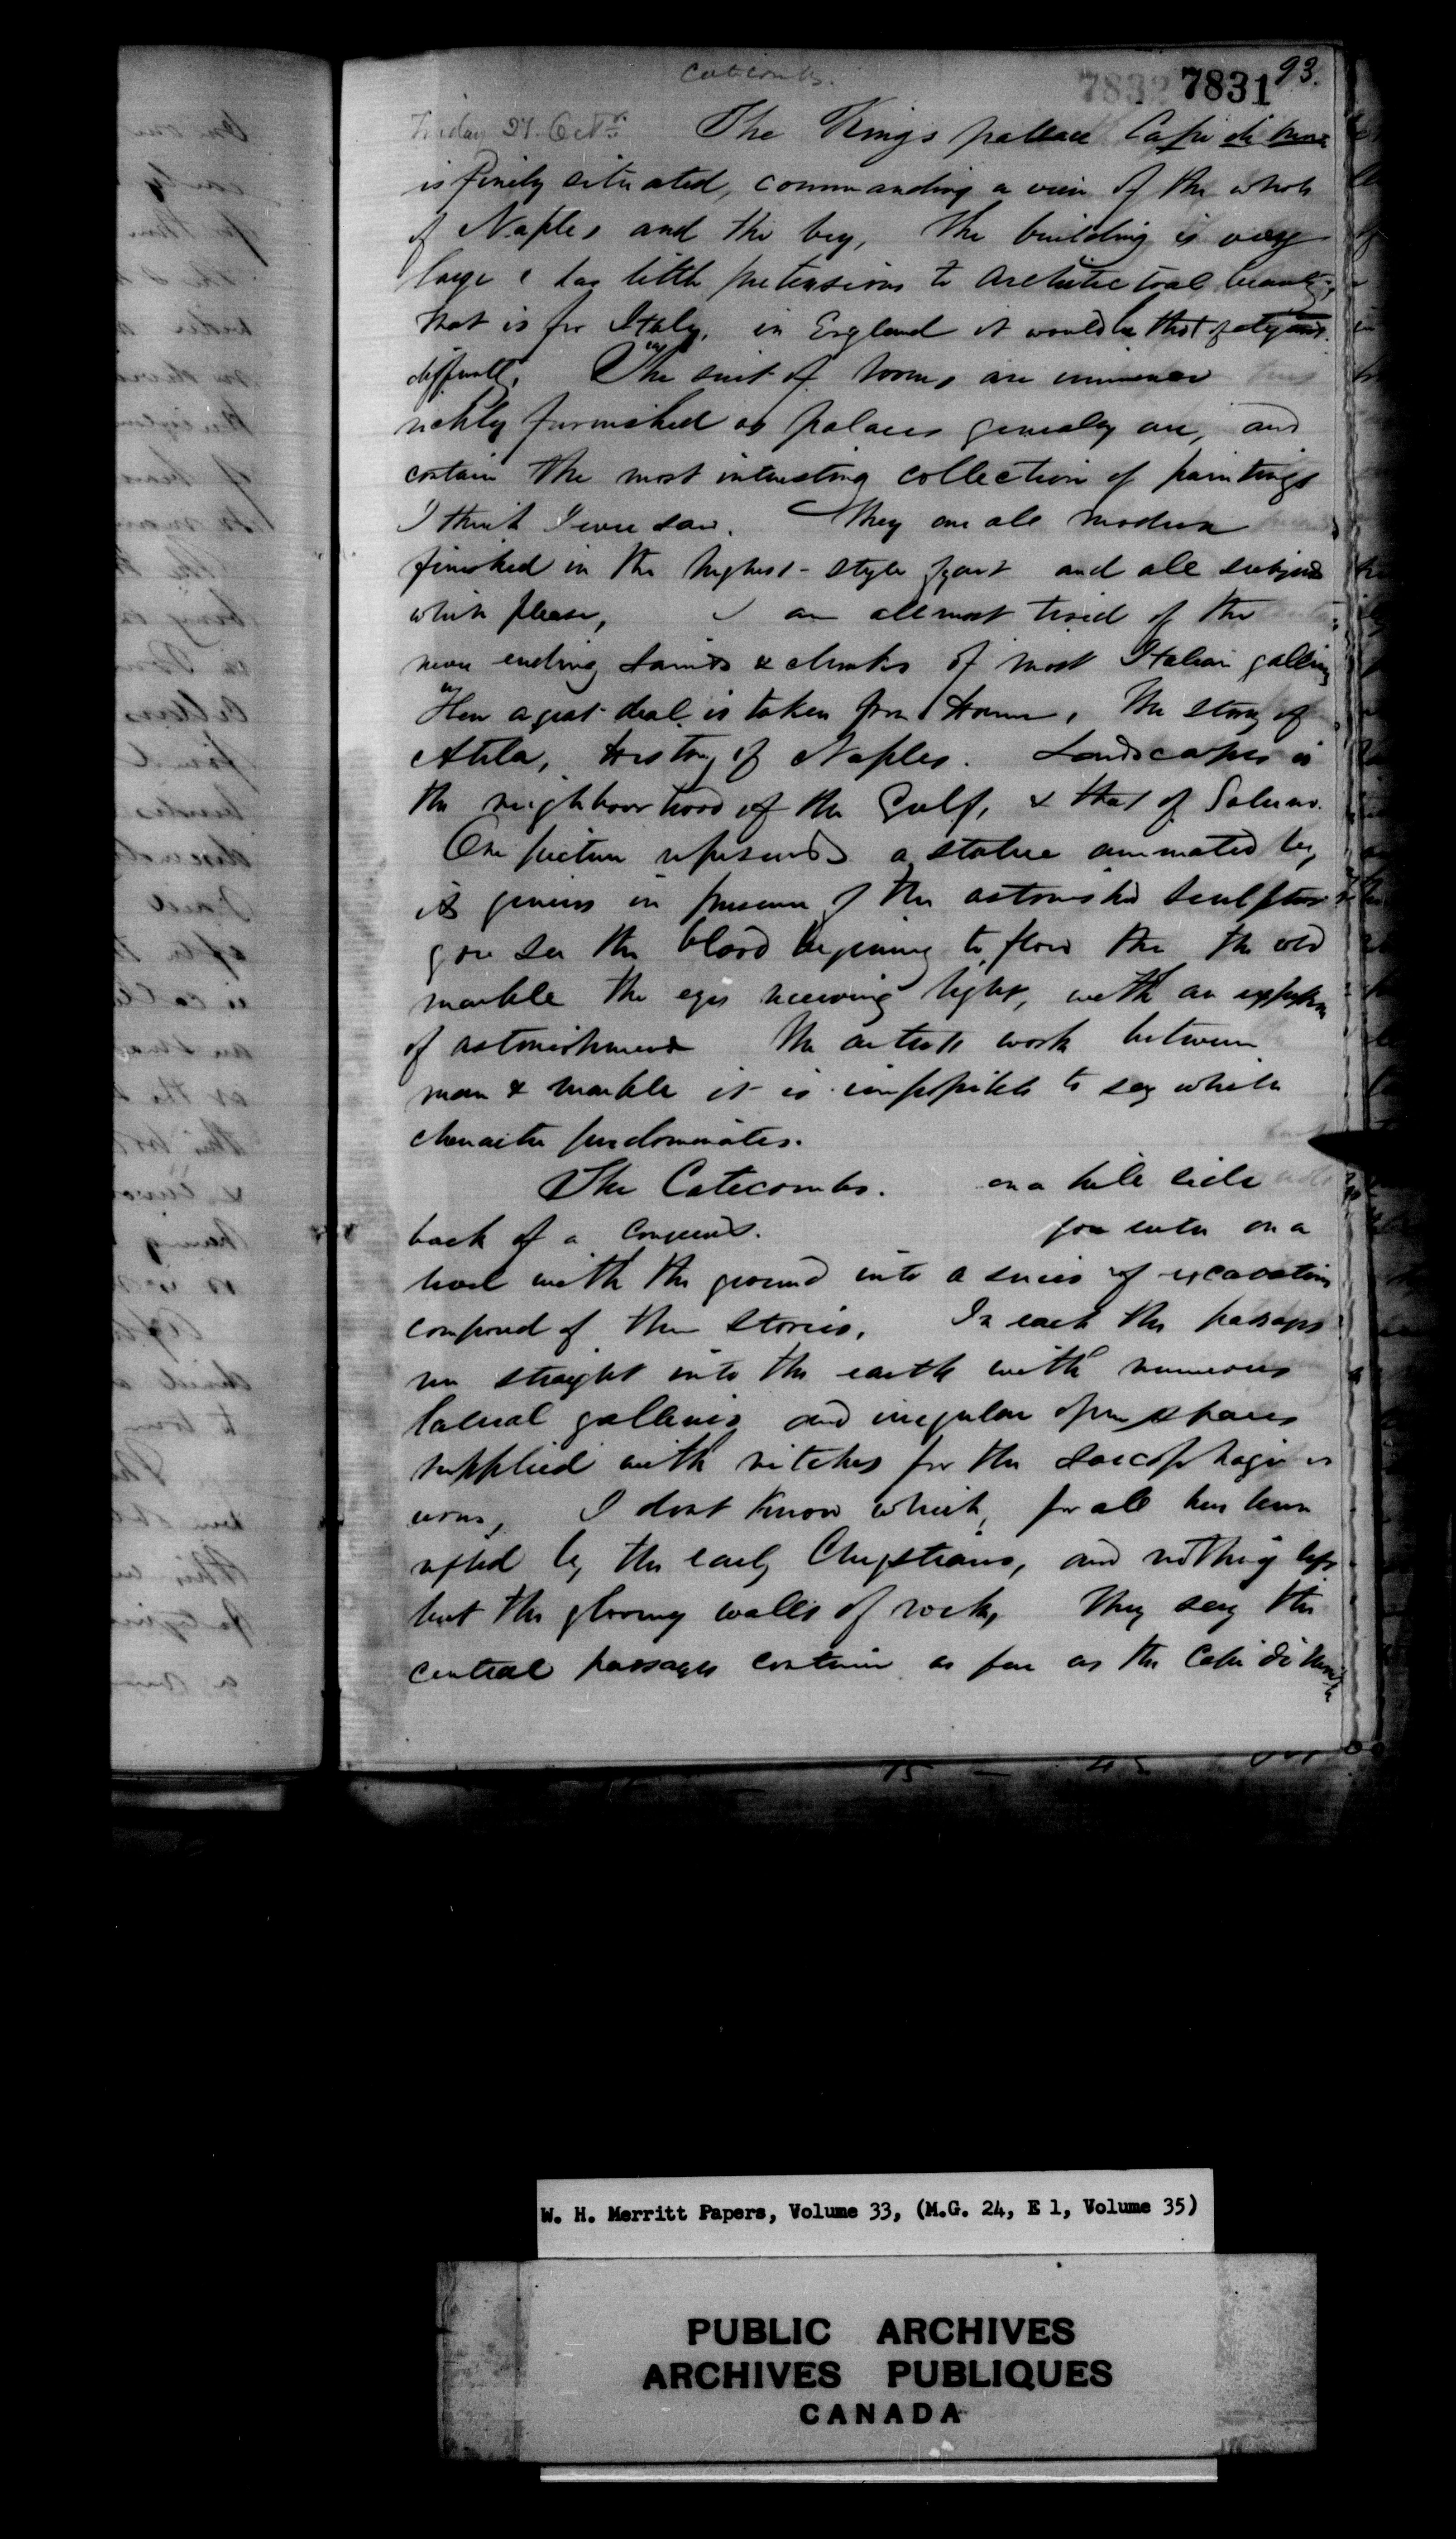 Catcombs.
7832 7831 93.
Friday 27. Octr. The Kings pallace Capi di Mone
is finely situated, commanding a view of the whole
of Naples and the bay, The building is very
large & has little pretensions to Architectoral beauty,
that is for Italy, in England it would be thot
difficultly, The suit of rooms are immence
richly furnished as palaces generaly are, and
contain the most interesting collection of paintings
I think I ever saw. They are all modern
finished in the highest style of art and all subjects
which please, I am allmost tired of the
never ending Saints & of most Italian galleries
Here a great deal is taken from Homer, The story of
Atila, History of Naples. Landscapes in
the neighbourhood of the Gulf, & that of Salerno.
One picture represents a statue animated by
its genius in presence of the astonished Sculptor
you see the blood begining to flow thro the old
marble the eyes receiving light, with an expression
of astonishment The artists work between
man & marble it is impossible to say which
character predominates.
The Catecombs. on a hill side
back of a Convent. you enter on a
level with the ground into a series of excavations
composed of three stories, In each the passages
run straight into the earth with numerous
lateral galleries and irregular open spaces
supplied with nitches for the Sarcophagi or
urns, I dont know which, for all has been
rifled by the early Chrystians, and nothing left
but the gloomy walls of rock, They say the
central passages continue as far as the Capi di Mone
W. H. Merritt Papers, Volume 33, (M.G. 24, E 1, Volume 35)
PUBLIC ARCHIVES
ARCHIVES PUBLIQUES
CANADA